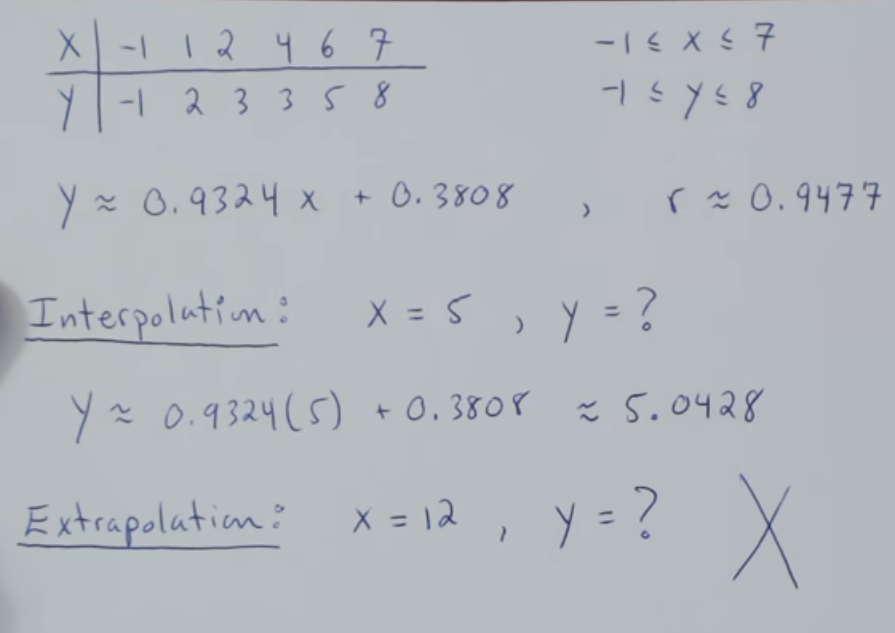 X | -1 1 2 4 6 7 -1 ≤ x ≤ 7
Y | -1 2 3 3 5 8 -1 ≤ y ≤ 8
y ≈ 0.9324 x + 0.3808 , r ≈ 0.9477
Interpolation: x = 5 , y = ?
y ≈ 0.9324(5) + 0.3808 ≈ 5.0428
Extrapolation: x = 12 , y = ? X